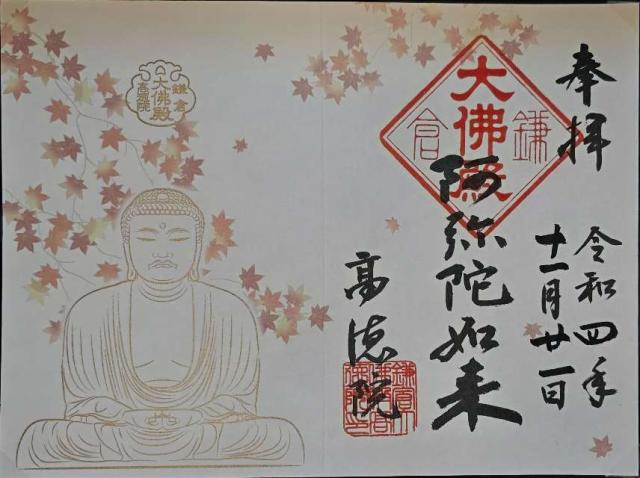 奉拝
令和四年
十一月廿一日
大佛殿
鎌倉
阿弥陀如来
高徳院
鎌倉
大佛殿
高徳院